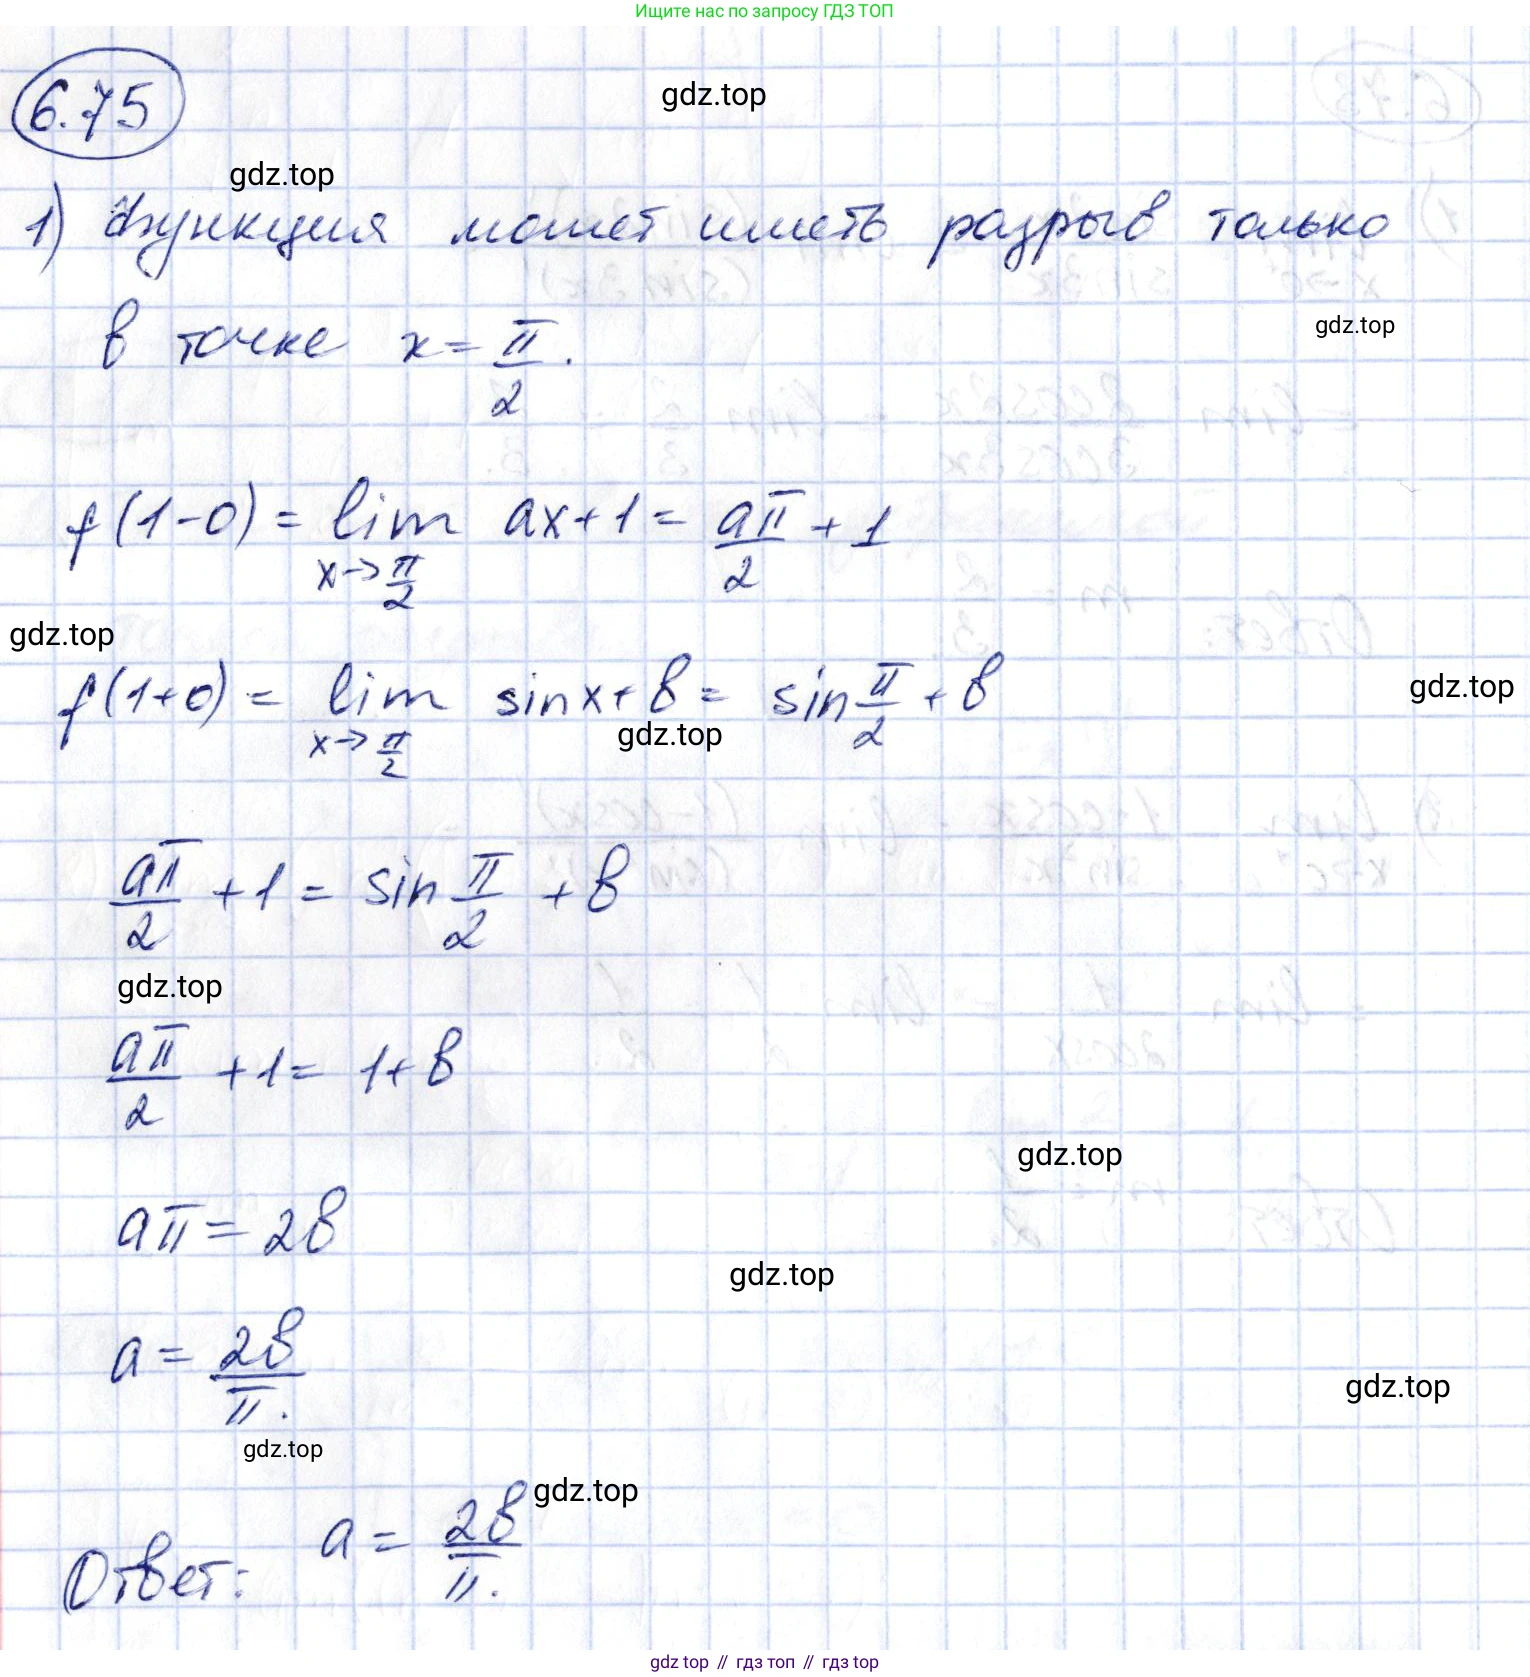 Ищите нас по запросу ГДЗ ТОП
6.75
gdz.top
gdz.top
1) Функция может иметь разрыв только
в точке x = π/2.
gdz.top
f(1-0) = lim x→π/2 ax+1 = aπ/2 + 1
gdz.top
f(1+0) = lim x→π/2 sinx+в = sin π/2 + в
gdz.top
gdz.top
aπ/2 + 1 = sin π/2 + в
gdz.top
aπ/2 + 1 = 1 + в
gdz.top
aπ = 2в
gdz.top
a = 2в/π.
gdz.top
gdz.top
gdz.top
Ответ: a = 2в/π.
gdz.top // гдз топ // гдз top